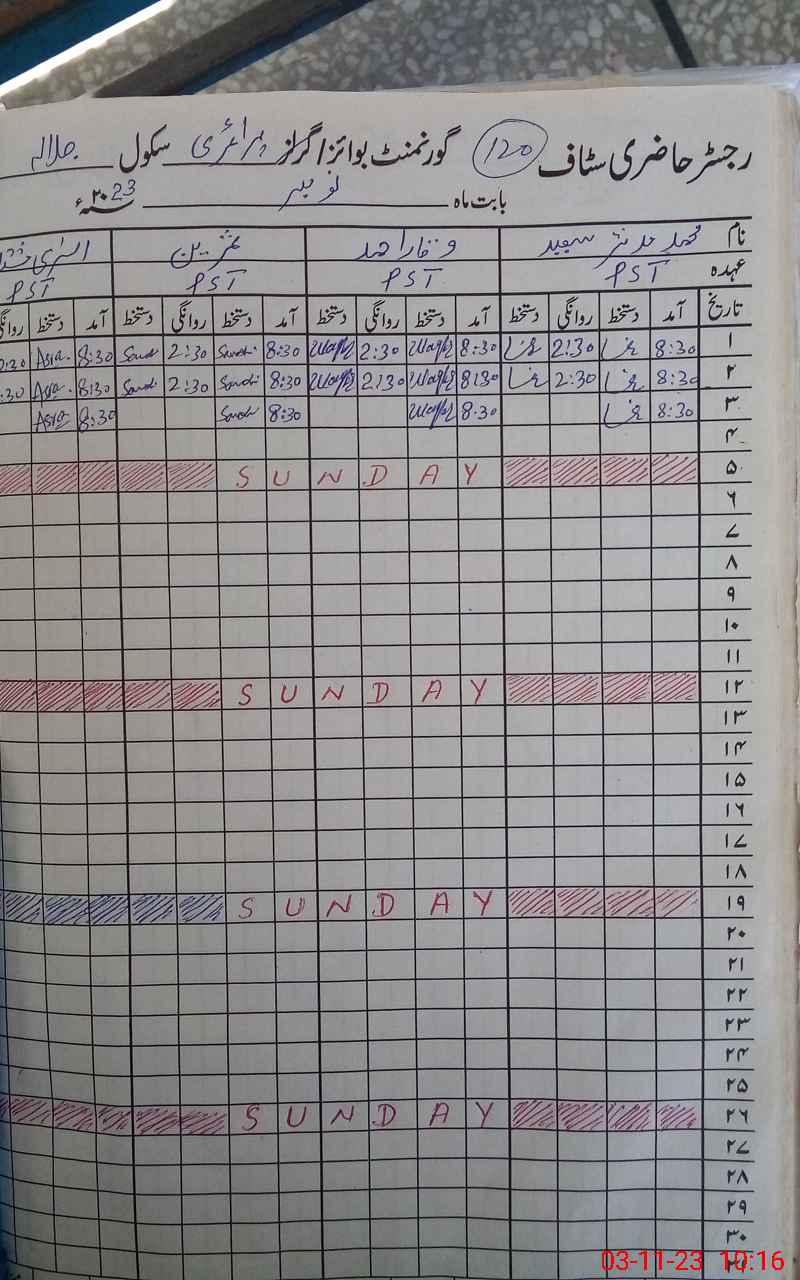 رجسٹر حاضری سٹاف 120 گورنمنٹ بوائز / گرلز پرائمری سکول جلالہ
بابت ماہ نومبر ۲۰23ء
نام محمد مدثر سعید وقار احمد
عہدہ PST PST PST PST
تاریخ آمد دستخط روانگی دستخط آمد دستخط روانگی دستخط آمد دستخط روانگی دستخط آمد دستخط روانگی
۱ 8:30 2:30 8:30 Waqar 2:30 Waqar 8:30 2:30 8:30 Asra 2:30
۲ 8:30 2:30 8:30 Waqar 2:30 Waqar 8:30 2:30 8:30 Asra :30
۳ 8:30 8:30 Waqar 8:30 8:30 Asra
۴
۵ SUNDAY
۶
۷
۸
۹
۱۰
۱۱
۱۲ SUNDAY
۱۳
۱۴
۱۵
۱۶
۱۷
۱۸
۱۹ SUNDAY
۲۰
۲۱
۲۲
۲۳
۲۴
۲۵
۲۶ SUNDAY
۲۷
۲۸
۲۹
۳۰
03-11-23 10:16